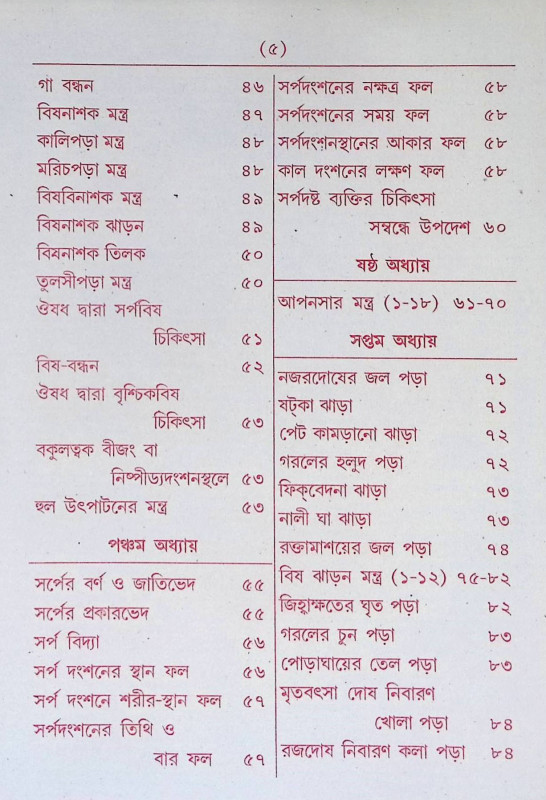 (৫)
গা বন্ধন ৪৬
বিষনাশক মন্ত্র ৪৭
কালিপড়া মন্ত্র ৪৮
মরিচপড়া মন্ত্র ৪৮
বিষবিনাশক মন্ত্র ৪৯
বিষনাশক ঝাড়ন ৪৯
বিষনাশক তিলক ৫০
তুলসীপড়া মন্ত্র ৫০
ঔষধ দ্বারা সর্পবিষ
চিকিৎসা ৫১
বিষ-বন্ধন ৫২
ঔষধ দ্বারা বৃশ্চিকবিষ
চিকিৎসা ৫৩
বকুলত্বক বীজং বা
নিষ্পীড্যদংশনস্থলে ৫৩
হুল উৎপাটনের মন্ত্র ৫৩
পঞ্চম অধ্যায়
সর্পের বর্ণ ও জাতিভেদ ৫৫
সর্পের প্রকারভেদ ৫৫
সর্প বিদ্যা ৫৬
সর্প দংশনের স্থান ফল ৫৬
সর্প দংশনে শরীর-স্থান ফল ৫৭
সর্পদংশনের তিথি ও
বার ফল ৫৭
সর্পদংশনের নক্ষত্র ফল ৫৮
সর্পদংশনের সময় ফল ৫৮
সর্পদংশনস্থানের আকার ফল ৫৮
কাল দংশনের লক্ষণ ফল ৫৮
সর্পদষ্ট ব্যক্তির চিকিৎসা
সম্বন্ধে উপদেশ ৬০
ষষ্ঠ অধ্যায়
আপনসার মন্ত্র (১-১৮) ৬১-৭০
সপ্তম অধ্যায়
নজরদোষের জল পড়া ৭১
ষট্‌কা ঝাড়া ৭১
পেট কামড়ানো ঝাড়া ৭২
গরলের হলুদ পড়া ৭২
ফিক্‌বেদনা ঝাড়া ৭৩
নালী ঘা ঝাড়া ৭৩
রক্তামাশয়ের জল পড়া ৭৪
বিষ ঝাড়ন মন্ত্র (১-১২) ৭৫-৮২
জিহ্বাক্ষতের ঘৃত পড়া ৮২
গরলের চুন পড়া ৮৩
পোড়াঘায়ের তেল পড়া ৮৩
মৃতবৎসা দোষ নিবারণ
খোলা পড়া ৮৪
রজদোষ নিবারণ কলা পড়া ৮৪